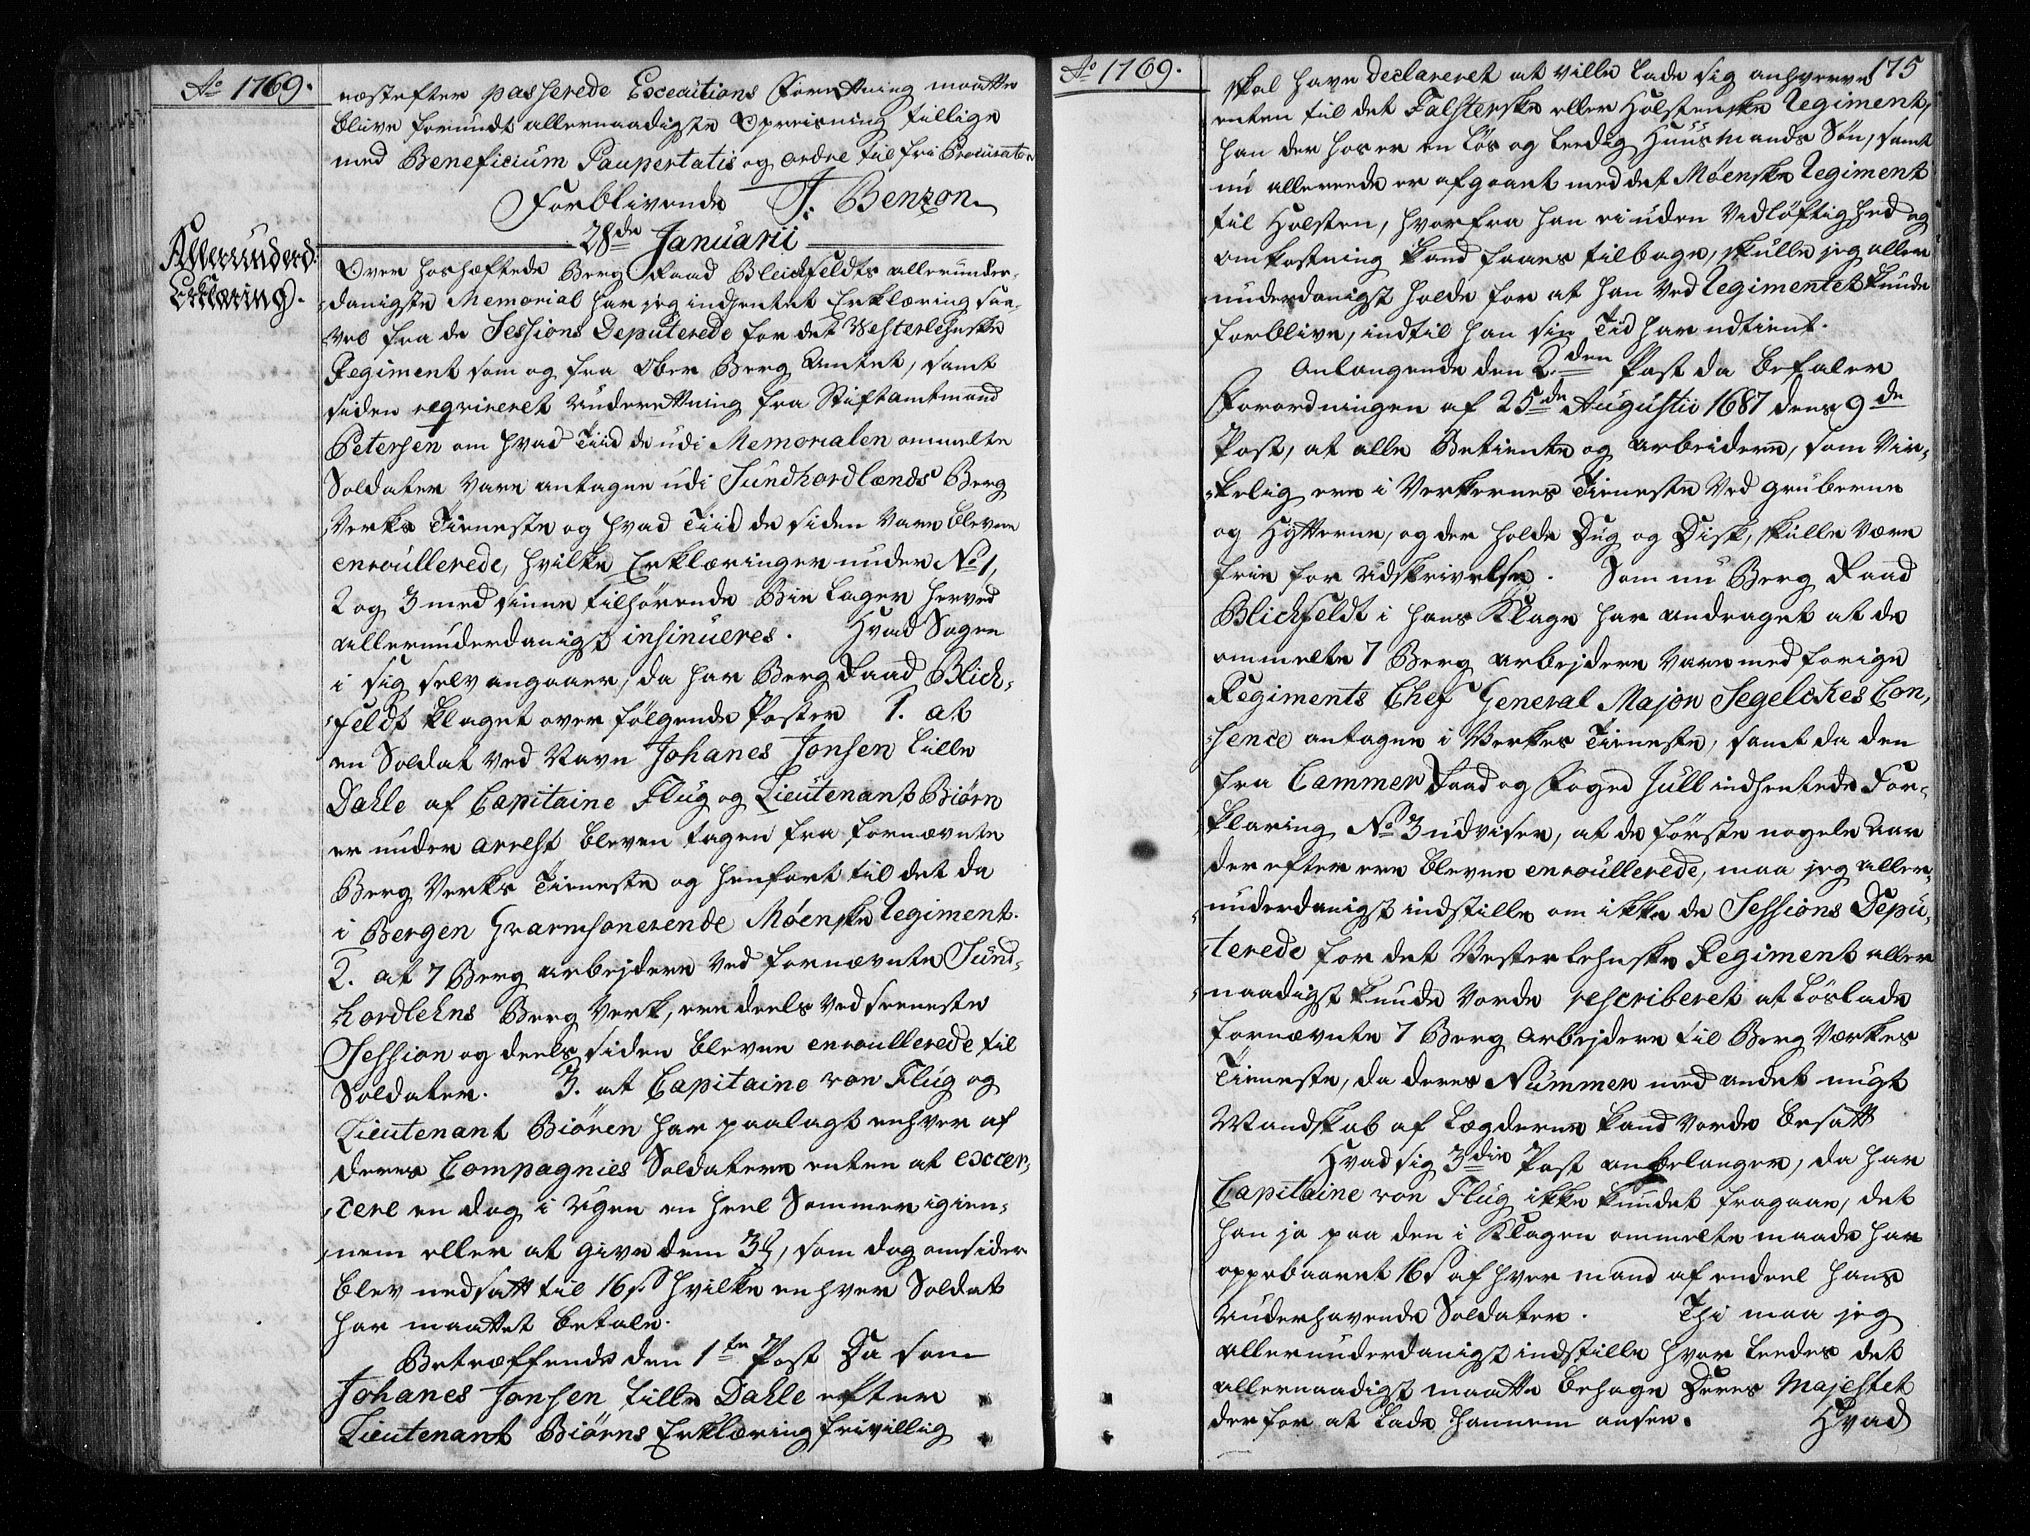 Ao 1769.
næstefter passerede Executions Forretning maatte
blive forundt allernaadigste Opreisning tillige
med Beneficium Paupertatis og ordre til fri Procurator
Forblivende J: Benzon
28de Januarii
Allerunderd:
Erklæring.
Over hoshæftede Berg Raad Blichfeldts allerunder-
danigste Memorial har jeg indhentet Erklæring saa-
vel fra de Sessions Deputerede for det Westerlehnske
Regiment som og fra Ober Berg Amtet, samt
siden reqvireret Underrettning fra Stiftamtmand
Petersen om hvad Tiid de udi Memorialen ommelte
Soldater vare antagne udi Sundhordlænds Berg
Verks Tieneste og hvad Tiid de siden vare blevne
enroullerede, hvilke Erklæringer under No 1,
2 og 3 med sinne tilhørende Bielager herved
allerunderdanigst insinueres. Hvad Sagen
i sig selv angaaer, da har Berg Raad Blich-
feldt klaget over følgende Poster 1. at
en Soldat ved Navn Johanes Jonsen Lille
Dahle af Capitaine Flug og Lieutenant Biørn
er under arrest bleven tagen fra fornævnte
Berg Verks Tieneste og henført til det da
i Bergen Gvarnisonerende Møenske Regiment.
2. at 7 Berg arbejdere ved fornævnte Sund-
hordlehns Berg Verk, ere deels ved seeneste
Session og deels siden blevne enroullerede til
Soldater. 3. at Capitaine von Flug og
Lieutenant Biøren har paalagt enhver af
deres Compagnies Soldatere enten at excer-
cere en dag i Ugen en heel Sommer igien-
nem eller at give dem 3 , som dog omsider
blev nedsatt til 16 s. hvilke enhver Soldat
har maattet betale.
Betræffende den 1te Post Da som
Johanes Jonsen Lille Dahle efter
Lieutenant Biørns Erklæring frivillig
Ao 1769.
175
skal have declareret at ville lade sig anhverve
enten til det Falsterske eller Holstenske Regiment,
han der hos er en løs og leedig Huusmands Søn, samt
nu allerede er afgaaet med det Møenske Regiment
til Holsten, hvorfra han ei uden Vidløftighed og
omkostning kand faaes tilbage, skulle jeg aller
underdanigst holde for at han ved Regimentet kunde
forblive, indtil han sin Tid har udtient.
Anlangende den 2den Post da befaler
Forordningen af 25de Augustii 1687 dens 9de
Post, at alle Betiente og arbeidere, som vir-
kelig ere i Verkernes Tieneste ved Gruberne
og Hytterne, og der holde Dug og Disk, skulle være
frie for Udskrivelse. Som nu Berg Raad
Blichfeldt i hans Klage har andraget at de
ommelte 7 Berg arbejdere vare med forige
Regiments Chef General Major Segelckes Con-
sence antagne i Verkes Tieneste, samt da den
fra Cammer Raad og Foged Jull indhentede For-
klaring No 3 udviser, at de første nogele Aar
derefter ere blevne enroullerede, maa jeg aller-
underdanigst indstille om ikke de Sessions Depu-
terede for det Vesterlehnske Regiment aller
naadigst kunde vorde rescriberet at løslade
fornævnte 7 Berg Arbejdere til Berg Værkes
Tieneste, da deres Nummer med andet nugt
Mandskab af Lægderne kand vorde besatt
Hvad sig 3die Post anbelanger, da har
Capitaine von Flug ikke kundet fragaae, det
han jo paa den i Klagen ommelte maade har
oppebaaret 16 s af hver mand af endeel hans
Underhavende Soldater. Thi maa jeg
allerunderdanigst indstille hvor leedes det
allernaadigst maatte behage Deres Majestet
derfor at lade hannem ansee.
Hvad